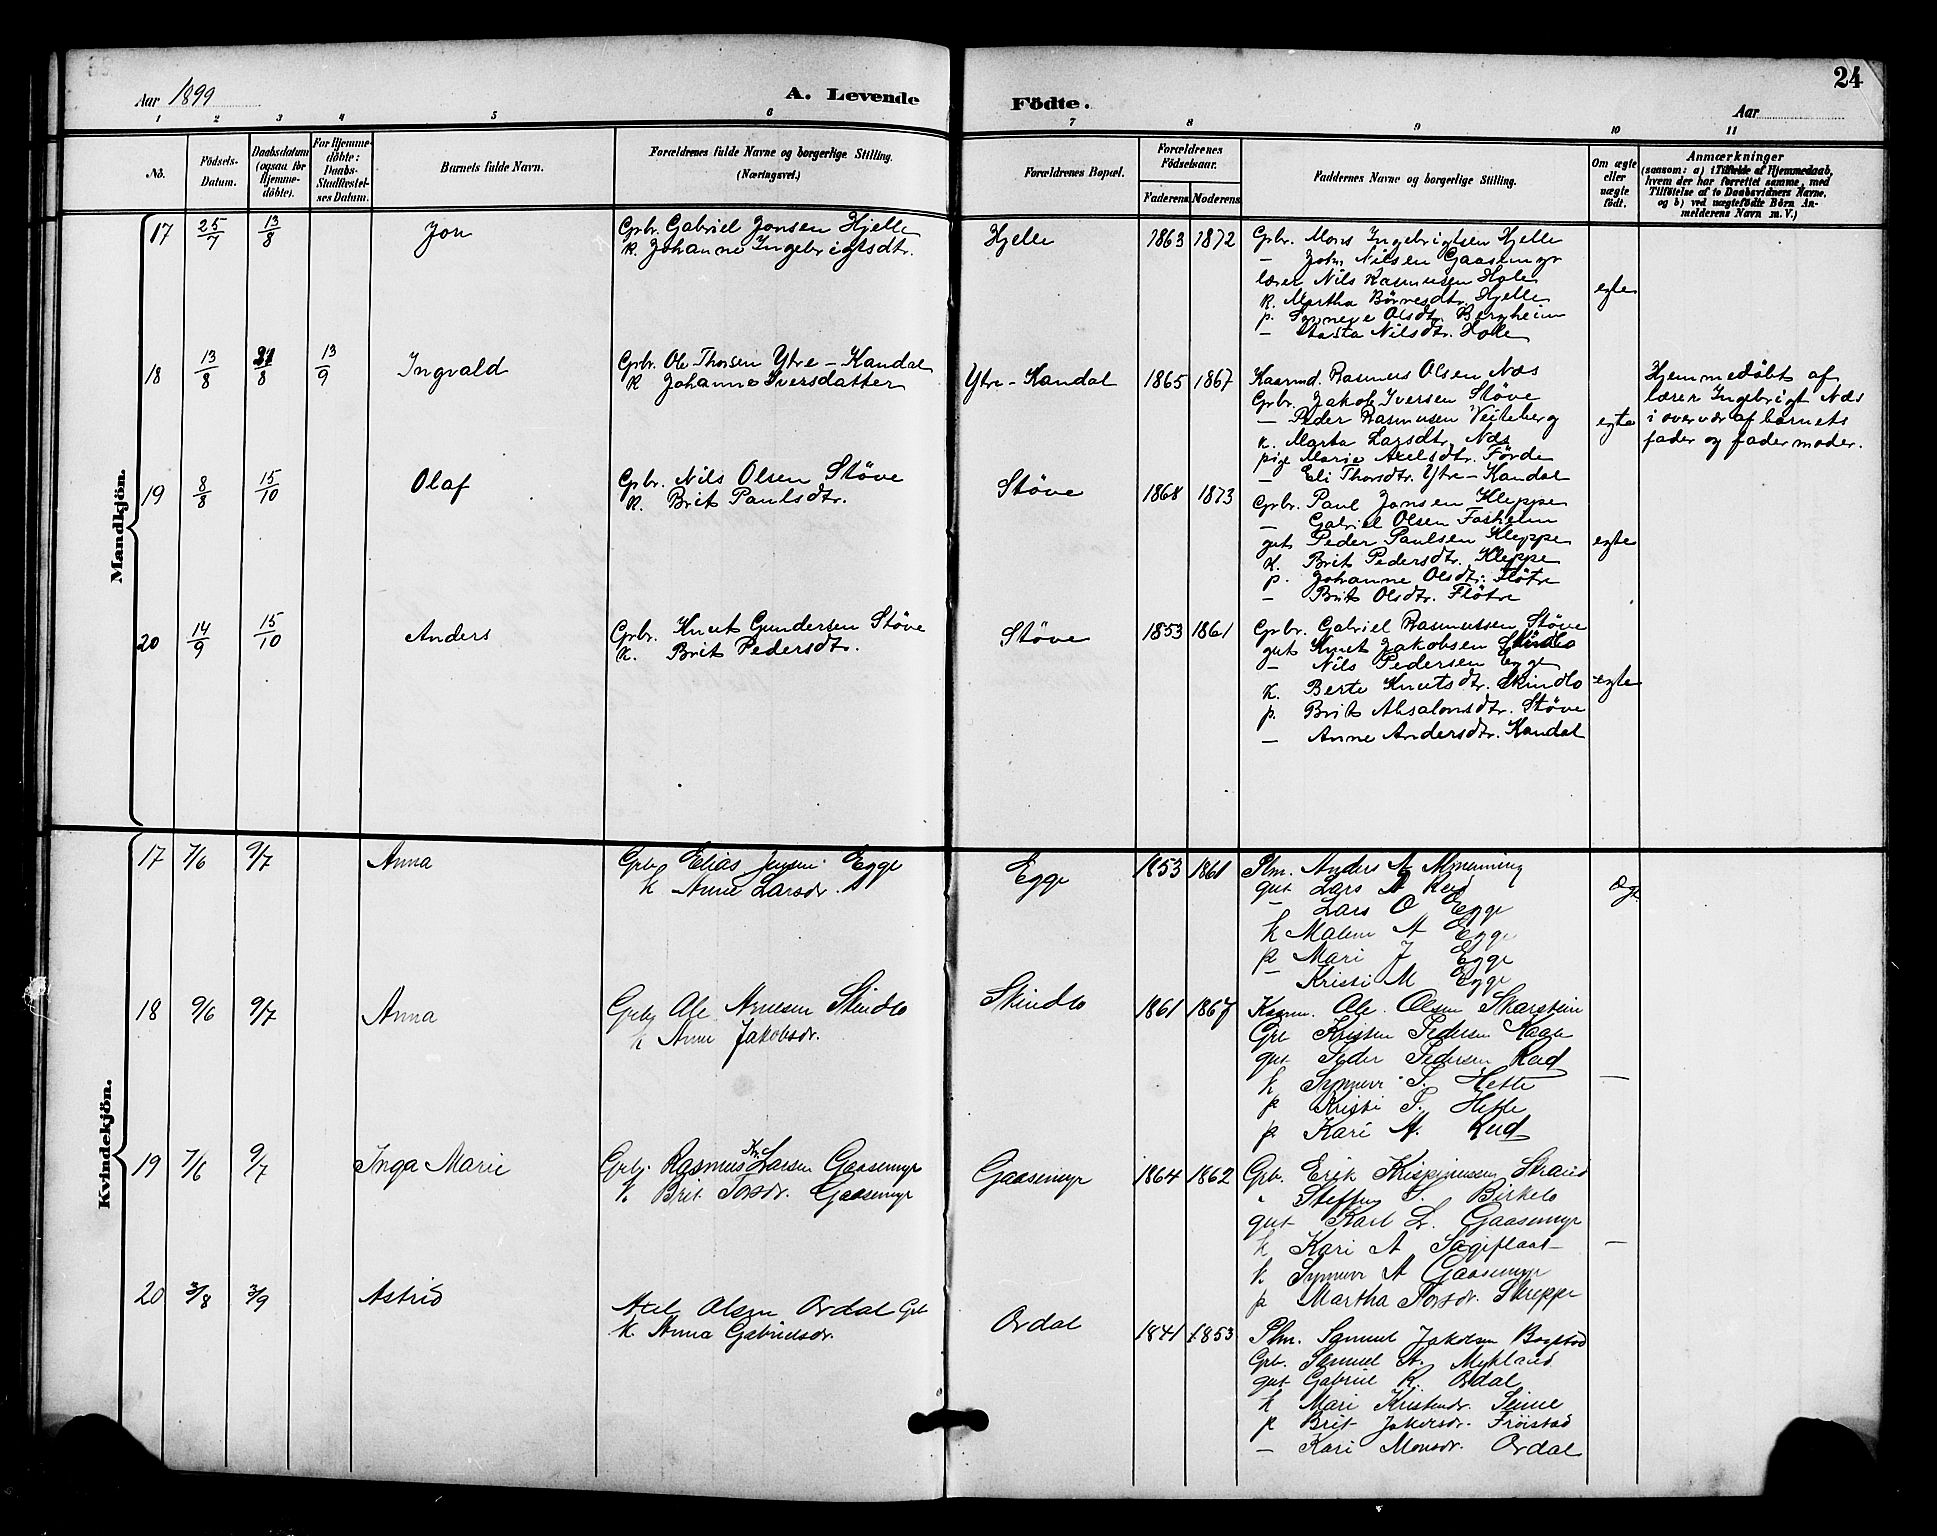 Aar 1899 A. Levende Födte. Aar 24
1 2 3 4 5 6 7 8 9 10 11
No. Födsels-Datum. Daabsdatum (ogsaa for Hjemmedöbte). For Hjemmedöbte: Daabs-Stadfæstelses Datum. Barnets fulde Navn. Forældrenes fulde Navne og borgerlige Stilling. (Næringsvei.) Forældrenes Bopæl. Forældrenes Födselsaar. Faderens Moderens Faddernes Navne og borgerlige Stilling. Om ægte eller uægte födt. Anmærkninger (saasom: a) i Tilfælde af Hjemmedaab, hvem der har forrettet samme, med Tilföielse af to Daabsvidners Navne, og b) ved uægtefödte Börn Anmelderens Navn m. V.)
Mandkjön.
17 25/7 13/8 Jon
Gbr. Gabriel Jonsen Hjelle
K. Johanne Ingebrigtsdtr.
Hjelle 1863 1872
Gbr. Mons Ingebrigtsen Hjelle
— John Nilsen Gaasemyr
lærer Nils Rasmusen Hole
K. Martha Börresdtr. Hjelle
p. Synneve Olsdtr. Bergheim
— Nilsdtr. Hole
egte
18 13/8 21/8 13/9 Ingvald
Gbr. Ole Thorsen Ytre-Kandal
K Johanne Iversdatter
Ytre-Kandal 1865 1867
Kaarmd. Rasmus Olsen Næs
Gbr. Jakob Iversen Støve
— Peder Rasmusen Veiteberg
K. Marta Larsdtr. Næs
pige Marie Axelsdtr. Förde
— Eli Thorsdtr. Ytre-Kandal
egte
Hjemmedöbt af
lærer Ingebrigt Næs
i overvær af barnets
fader og fadermoder.
19 8/8 15/10 Olaf
Gbr. Nils Olsen Støve
K. Brit Paulsdtr.
Støve 1868 1873
Gbr. Paul Jonsen Kleppe
— Gabriel Olsen Fosheim
gut Peder Paulsen Kleppe
K. Brit Pedersdtr. Kleppe
p. Johanne Olsdtr. Fløtre
— Brit Olsdtr. Fløtre
egte
20 14/9 15/10 Anders
Gbr. Knut Gundersen Støve
K. Brit Pedersdtr.
Støve 1853 1861
Gbr. Gabriel Rasmussen Støve
gut Knut Jakobsen Skindlo
— Nils Pedersen Egge
K. Berte Knutsdtr. Skindlo
p. Brit Absalonsdtr. Støve
— Anne Andersdtr. Kandal
egte
Kvindekjön.
17 7/6 9/7 Anna
Grbr Elias Jensen Egge
K Anne Larsdr.
Egge 1853 1861
Plm. Anders A Myrenning
gut Lars A Reed
— Lars O Egge
K Malene A Egge
p Mari J Egge
— Kristi M Egge
Ægt
18 9/6 9/7 Anna
Grbr Ole Arnesen Skindlo
K Anne Jakobsdr.
Skindlo 1861 1867
Kaarm. Ole Olsen Skarstein
Gbr Kristen Pedersen Aage
gut Peder Pedersen Reed
K Synneve P. Hette
p Kristi P. Hette
p Kari A. Reed
—
19 7/6 9/7 Inga Marie
Grbr. Rasmus Kr. Larsen Gaasemyr
K. Brit Torsdr. Gaasemyr
Gaasemyr 1864 1862
Grb. Erik Krispinussen Strand
" Steffen S. Birkelo
gut Karl L. Gaasemyr
K Kari A Sægeflaat
K Synneve A Gaasemyr
p Martha Torsdr. Skreppe
—
20 3/8 3/9 Astrid
Axel Olsen Ordal Grb
K Anna Gabrielsdr.
Ordal 1841 1853
Plm. Samuel Jakobsen Bogstad
Grb. Samuel A. Mykland
gut Gabriel K. Ordal
K Mari Kristensdr. Seime
p Brit Jakobsdr. Frøistad
— Kari Monsdr. Ordal